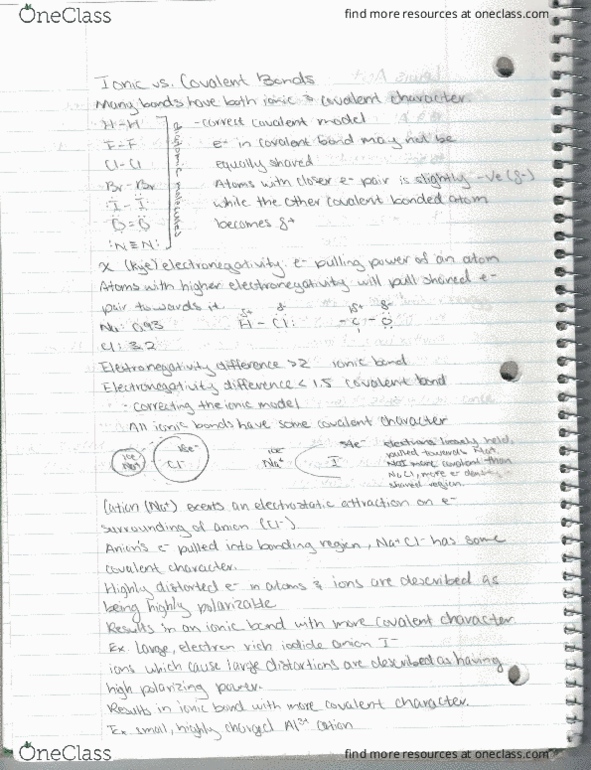 OneClass
find more resources at oneclass.com
Ionic vs. Covalent Bonds
Many bonds have both ionic & covalent character.
H-H
-correct covalent model
F-F
e- in covalent bond may not be
Cl-Cl
equally shared
Br-Br
Atoms with closer e- pair is slightly -ve (δ-)
I-I
while the other covalent bonded atom
O=O
becomes δ+
:N≡N:
diatomic molecules
X (kye) electronegativity: e- pulling power of an atom
Atoms with higher electronegativity will pull shared e-
pair towards it
δ+ δ-
H - Cl:
δ+ δ-
- C - O
Na: 0.93
Cl: 3.2
Electronegativity difference >2 ionic bond
Electronegativity difference < 1.5 covalent bond
- correcting the ionic model
All ionic bonds have some covalent character
10e-
Na+
18e-
Cl-
10e-
Na+
54e-
I
electrons loosely held,
pulled towards Na+.
NaI more covalent than
NaCl, more e- density
shared region.
Cation (Na+) exerts an electrostatic attraction on e-
surrounding of anion (Cl-)
Anion's e- pulled into bonding region, Na+Cl- has some
covalent character.
Highly distorted e- in atoms & ions are described as
being highly polarizable
Results in an ionic bond with more covalent character
Ex. Large, electron rich iodide anion I-
ions which cause large distortions are described as having
high polarizing power.
Results in ionic bond with more covalent character.
Ex. small, highly charged Al3+ cation
OneClass
find more resources at oneclass.com